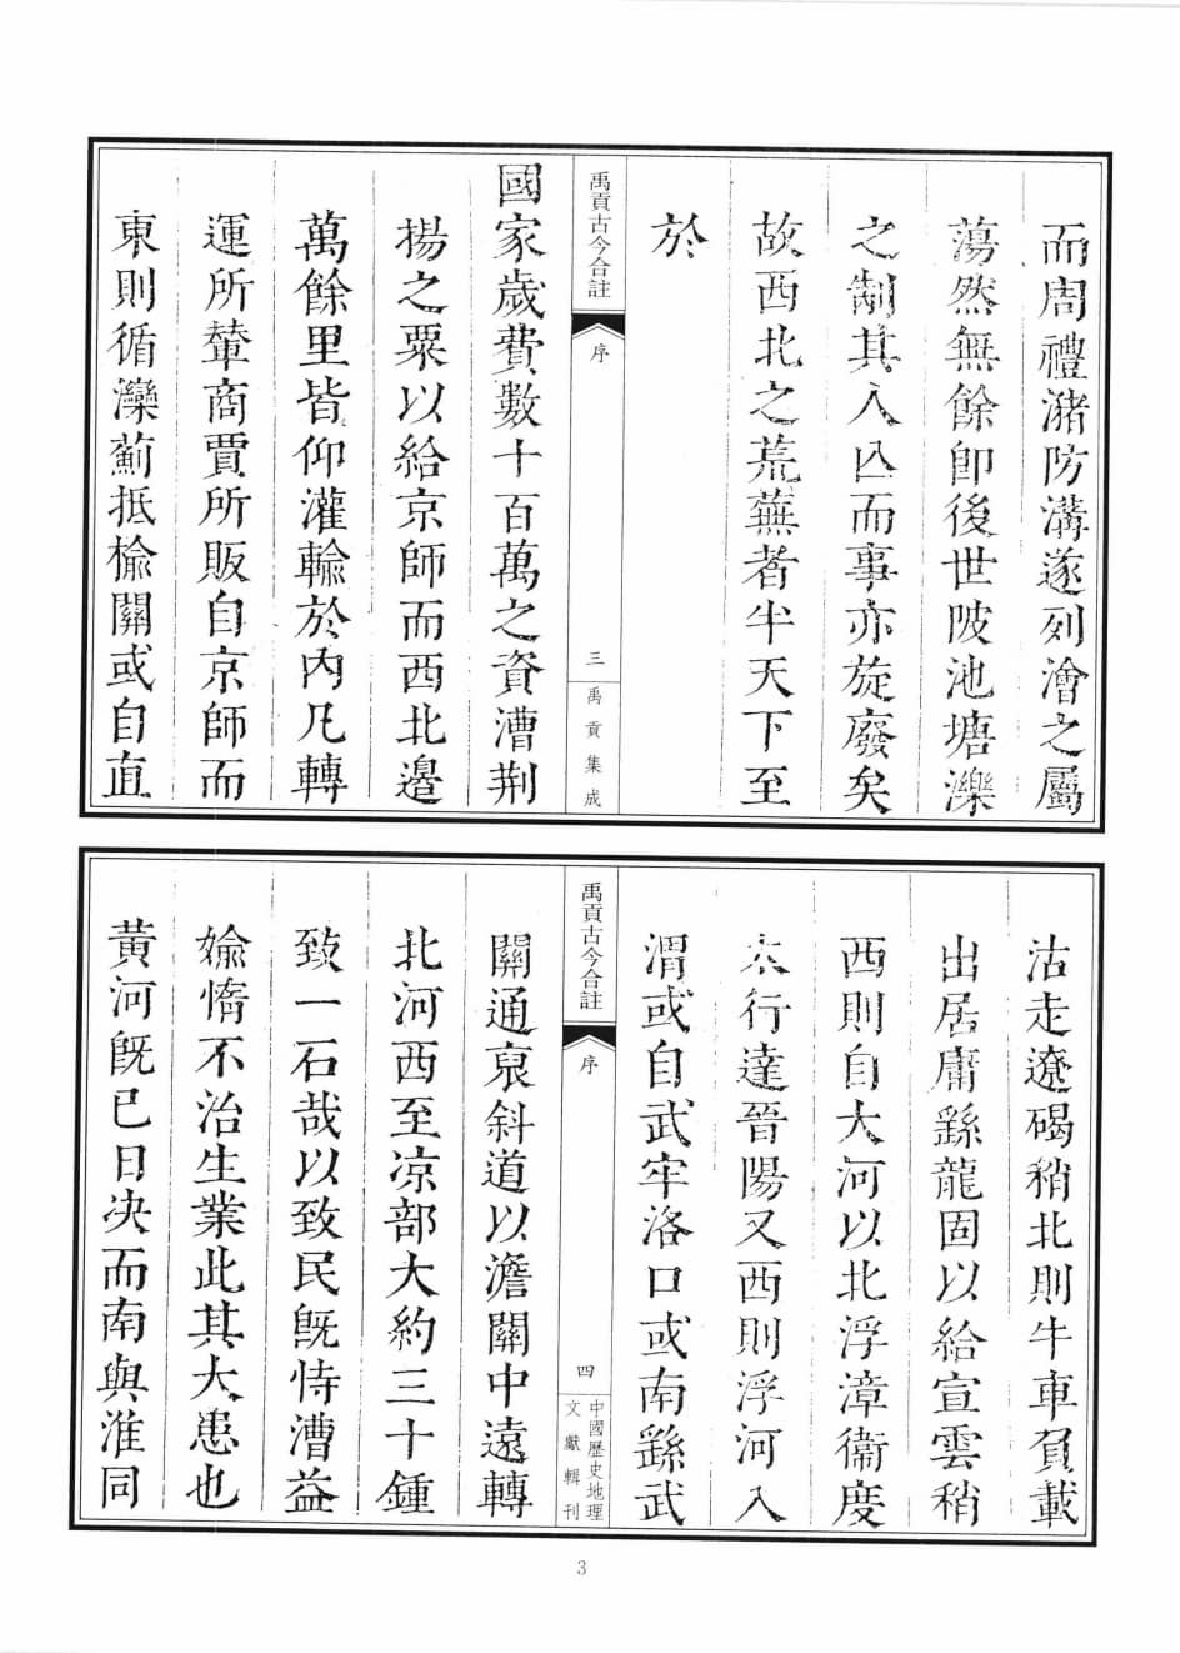 而周禮瀦防溝遂列澮之屬
蕩然無餘卽後世陂池塘濼
之制其入亾而事亦旋廢矣
故西北之荒蕪者半天下至
於
禹貢古今合註
序
三
禹貢集成
國家歲費數十百萬之資漕荆
揚之粟以給京師而西北邊
萬餘里皆仰灌輸於內凡轉
運所輦商賈所販自京師而
東則循灤薊抵榆關或自直
沽走遼碣稍北則牛車負載
出居庸繇龍固以給宣雲稍
西則自大河以北浮漳衞度
太行達晉陽又西則浮河入
渭或自武牢洛口或南繇武
禹貢古今合註
序
四
中國歷史地理
文獻輯刊
關通襃斜道以澹關中遠轉
北河西至凉部大約三十鍾
致一石哉以致民旣恃漕益
媮惰不治生業此其大患也
黃河旣已日決而南與淮同
3